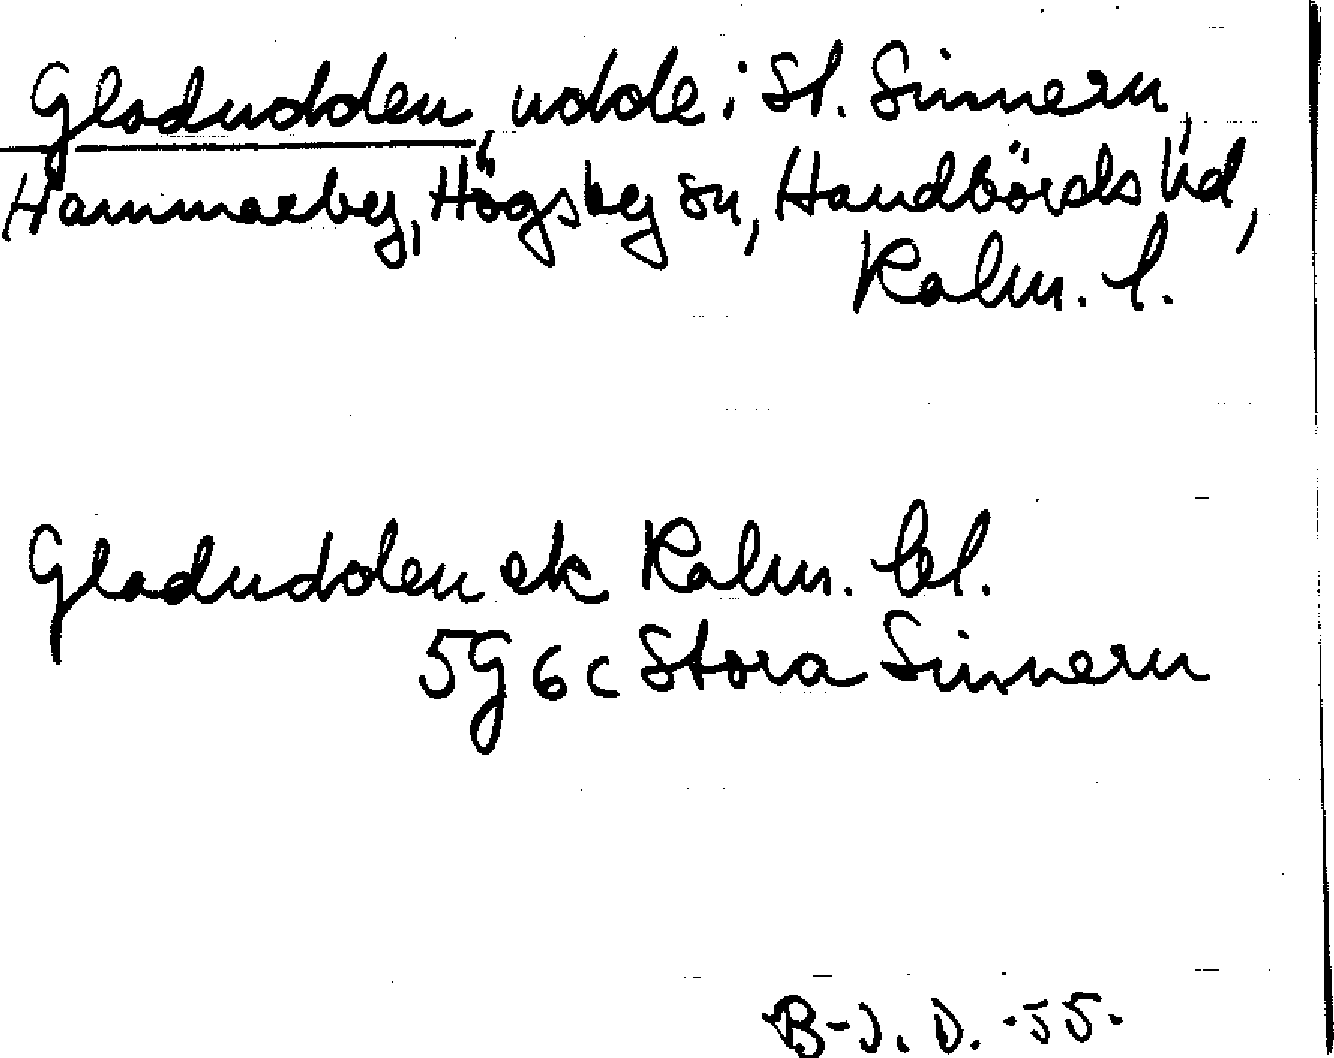 Gladudden, udde i St. Sinnern,
Hammarby, Högsby sn, Handbörds hd,
Kalm. l.
Gladudden ek Kalm. bl.
5g 6c Stora Sinnern
B-J. D. -55.